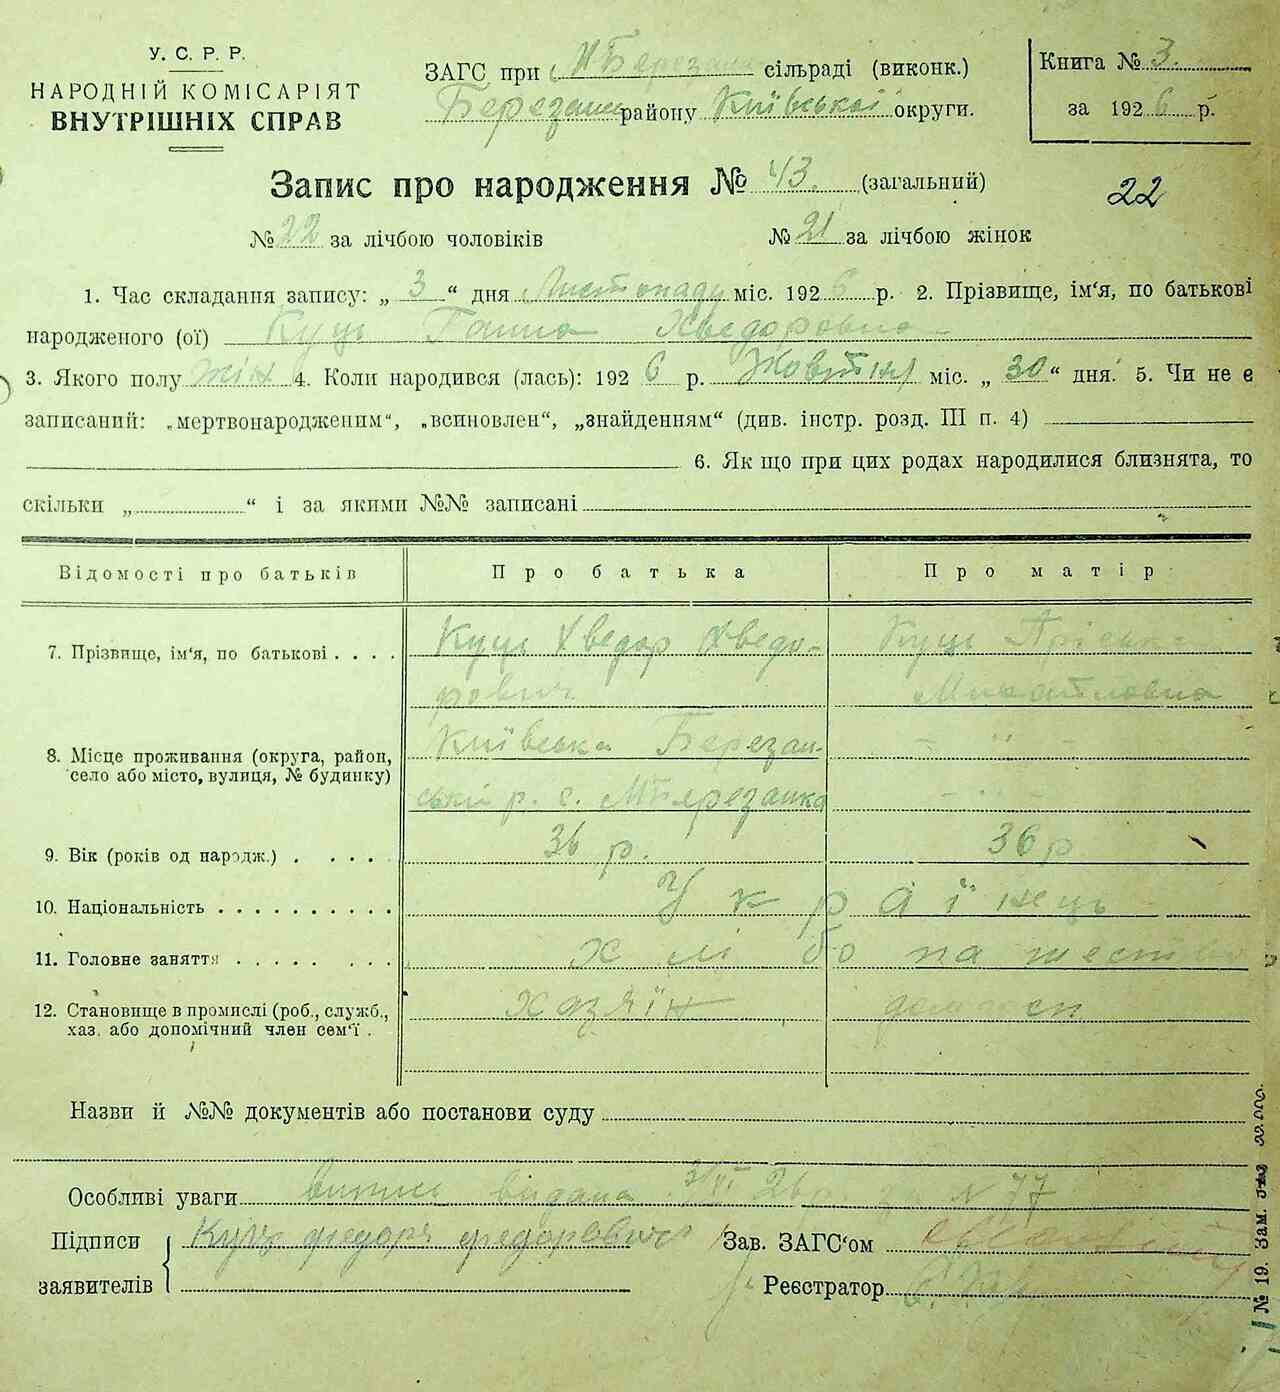 У. С. Р. Р.
НАРОДНІЙ КОМІСАРІЯТ
ВНУТРІШНІХ СПРАВ
ЗАГС при сільраді (виконк.)
району Київської округи.
Книга № 3.
за 1926 р.
Запис про народження № 43. (загальний)
22
№ 22 за лічбою чоловіків № 21 за лічбою жінок
1. Час складання запису: „ 3 “ дня Листопаду міс. 1926 р. 2. Прізвище, ім‘я, по батькові
народженого (ої) Куць Ганна Хведоровна
3. Якого полу жін 4. Коли народився (лась): 1926 р. Жовтня міс. „ 30 “ дня. 5. Чи не є
записаний: „мертвонародженим“, „всиновлен“, „знайденням“ (див. інстр. розд. III п. 4)
6. Як що при цих родах народилися близнята, то
скільки „ “ і за якими №№ записані
Відомості про батьків Про батька Про матір
7. Прізвище, ім‘я, по батькові . . . . Куць Хведор Хведо- Куць Пріська
рович Михайловна
8. Місце проживання (округа, район, Київська Березан- - „ -
село або місто, вулиця, № будинку) ській р. с. - „ -
9. Вік (років од народж.) . . . . . 36 р. 36 р
10. Національність . . . . . . . . . . Українець
11. Головне заняття . . . . . . . . . хлібопашество
12. Становище в промислі (роб., служб., хазяїн
хаз. або допомічний член сем‘ї .
Назви й №№ документів або постанови суду
Особливі уваги видана 26 № 77
Підписи Куць федоровичь Зав. ЗАГС‘ом
заявителів Реєстратор
№ 19. Зам.